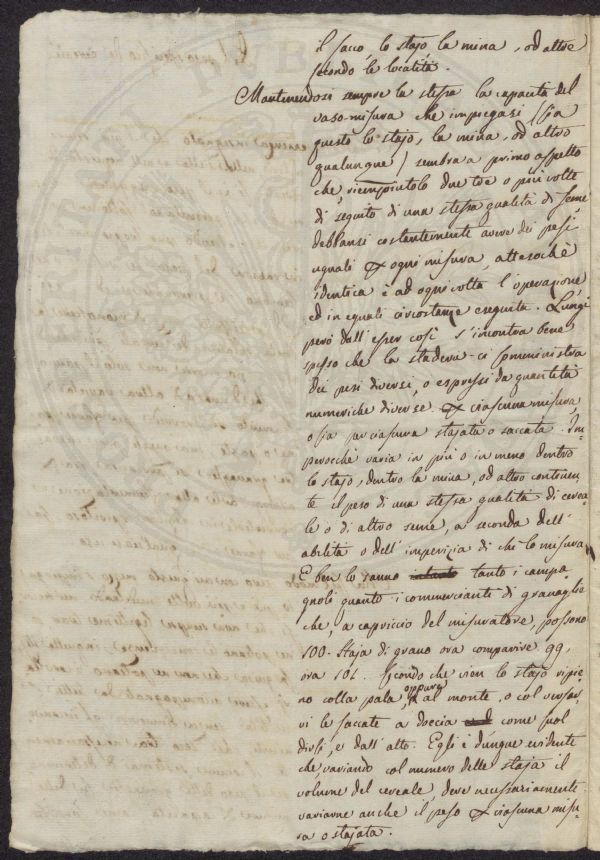 il sacco, lo stajo, la mina, od altro
secondo le località.
Mantenendosi sempre la stessa la capacità del
vaso-misura che impiegasi (sia
questo lo stajo, la mina, od altro
qualunque) sembra a primo aspetto
che, riempiutolo due tre o più volte
di seguito di una stessa qualità di seme
debbansi costantemente avere dei pesi
uguali per ogni misura, attesochè
identica è ad ogni volta l'operazione,
ed in eguali circostanze eseguita. Lungi
però dall'esser così s'incontra bene
spesso che la stadera ci somministra
dei pesi diversi, o espressi da quantità
numeriche diverse per ciascuna misura,
o sia per ciascuna stajata o saccata. Im-
perocchè varia in più o in meno dentro
lo stajo, dentro la mina, od altro continen-
te il peso di una stessa qualità di cerea-
le o di altro seme, a seconda dell'
abilità o dell'imperizia di chi lo misura.
E ben lo sanno tanto i campa-
gnoli quanto i commercianti di granaglie
che, a capriccio del misuratore, possono
100. Staja di grano ora comparire 99,
ora 101. Secondo che vien lo stajo ripie-
no colla pala, oppure al monte, o col versar-
vi le saccate a doccia come suol
dirsi, e dall'alto. Egli è dunque evidente
che, variando col numero delle staja il
volume del cereale, deve necessariamente
variarne anche il peso per ciascuna misu-
ra o stajata.